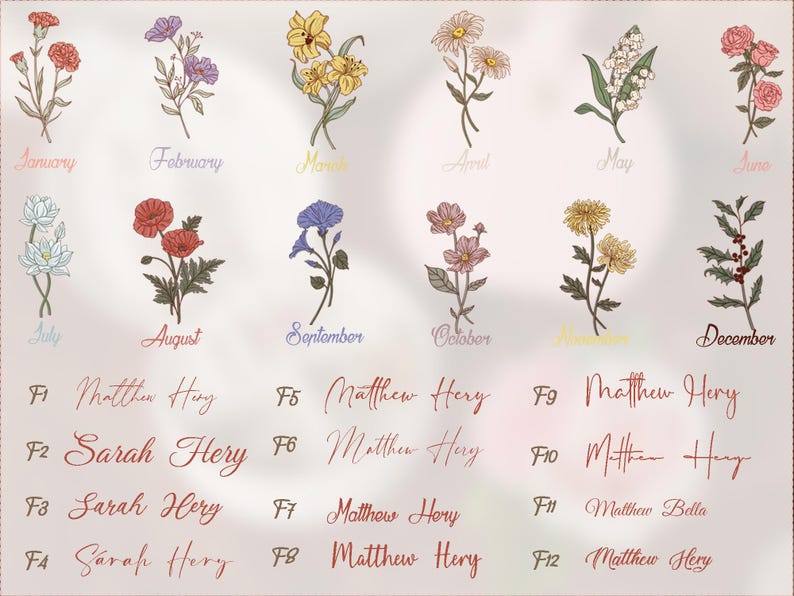 January February March April May June
July August September October November December
F1 Matthew Hery F5 Matthew Hery F9 Matthew Hery
F2 Sarah Hery F6 Matthew Hery F10 Matthew Hery
F3 Sarah Hery F7 Matthew Hery F11 Matthew Bella
F4 Sarah Hery F8 Matthew Hery F12 Matthew Hery